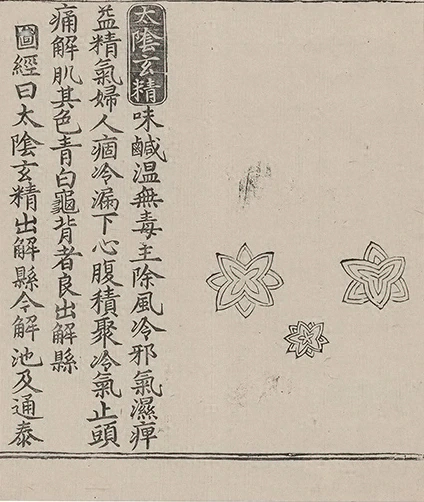 太陰玄精味鹹溫無毒主除風冷邪氣濕痺
益精氣婦人痼冷漏下心腹積聚冷氣止頭
痛解肌其色青白龜背者良出解縣
圖經曰太陰玄精出解縣今解池及通泰